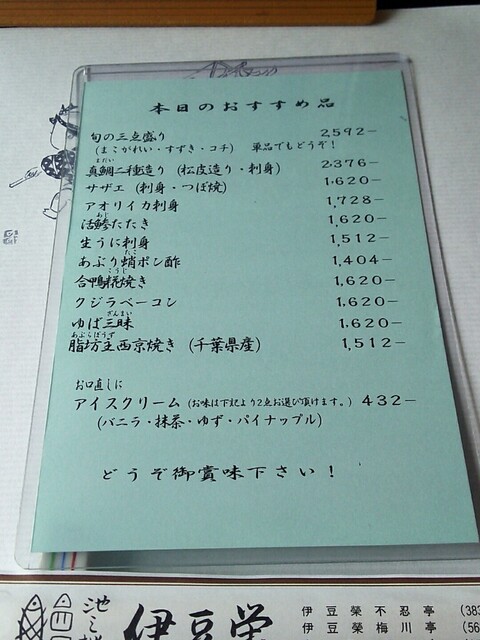 本日のおすすめ品
旬の三点盛り 2,592−
(まこがれい・すずき・コチ) 単品でもどうぞ!
まだい
真鯛二種造り (松皮造り・刺身) 2,376−
サザエ (刺身・つぼ焼) 1,620−
アオリイカ刺身 1,728−
あじ
活鯵たたき 1,620−
生うに刺身 1,512−
たこ
あぶり蛸ポン酢 1,404−
こうじ
合鴨糀焼き 1,620−
クジラベーコン 1,620−
ざんまい
ゆば三昧 1,620−
あぶらぼうず
脂坊主西京焼き (千葉県産) 1,512−
お口直しに
アイスクリーム (お味は下記より2点お選び頂けます。) 432−
(バニラ・抹茶・ゆず・パイナップル)
どうぞ御賞味下さい!
池之端
伊豆榮
伊豆榮不忍亭 (383
伊豆榮梅川亭 (56